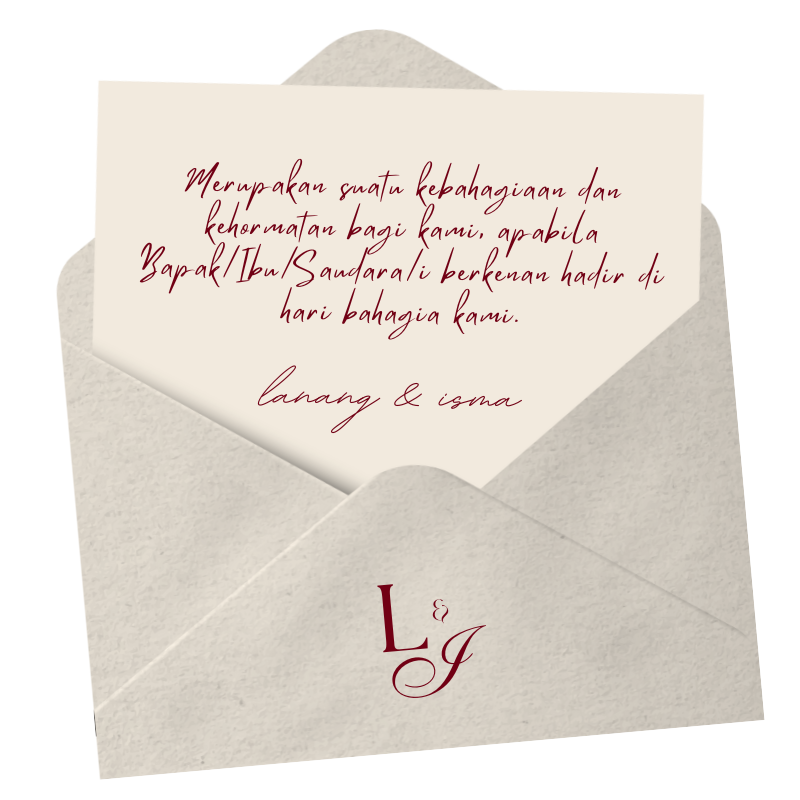 Merupakan suatu kebahagiaan dan
kehormatan bagi kami, apabila
Bapak/Ibu/Saudara/i berkenan hadir di
hari bahagia kami.
lanang & isma
L &
I